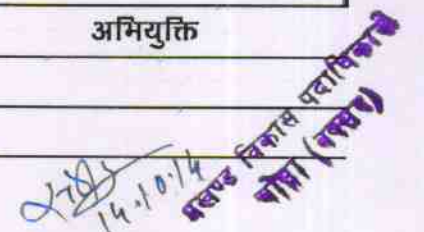 अभियुक्ति
14.10.14
प्रखण्ड विकास पदाधिकारी
(बक्सर)